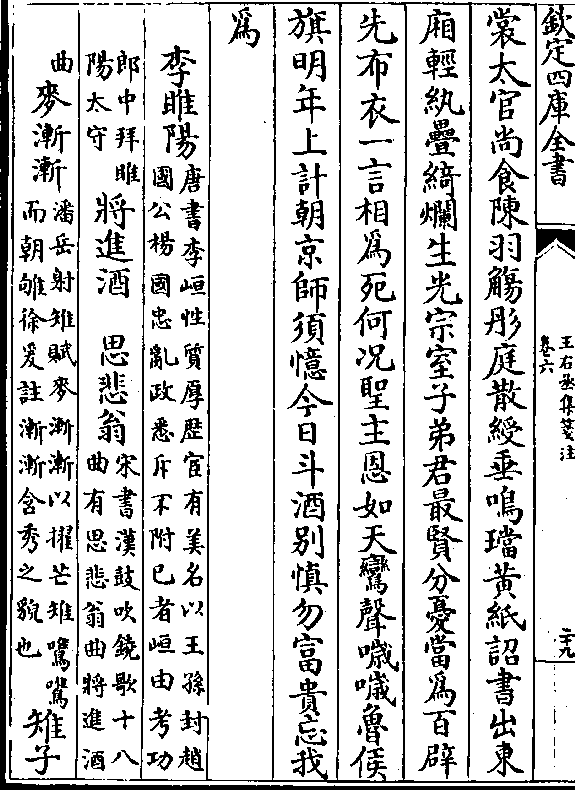 欽定四庫全書
王右丞集箋注
卷六
二十九
裳太官尚食陳羽觴彤庭散綬垂鳴璫黃紙詔書出東
廂輕紈疊綺爛生光宗室子弟君最賢分憂當為百辟
先布衣一言相為死何況聖主恩如天鸞聲噦噦魯侯
旗明年上計朝京師須憶今日斗酒別慎勿富貴忘我
為
李睢陽
唐書李峘性質厚歷宦有美名以王孫封趙
國公楊國忠亂政悉斥不附已者峘由考功
郎中拜睢
陽太守
將進酒 思悲翁
宋書漢鼓吹鐃歌十八
曲有思悲翁曲將進酒
曲
麥漸漸
潘岳射雉賦麥漸漸以擢芒雉鷕鷕
而朝雊徐爰註漸漸含秀之貌也
雉子